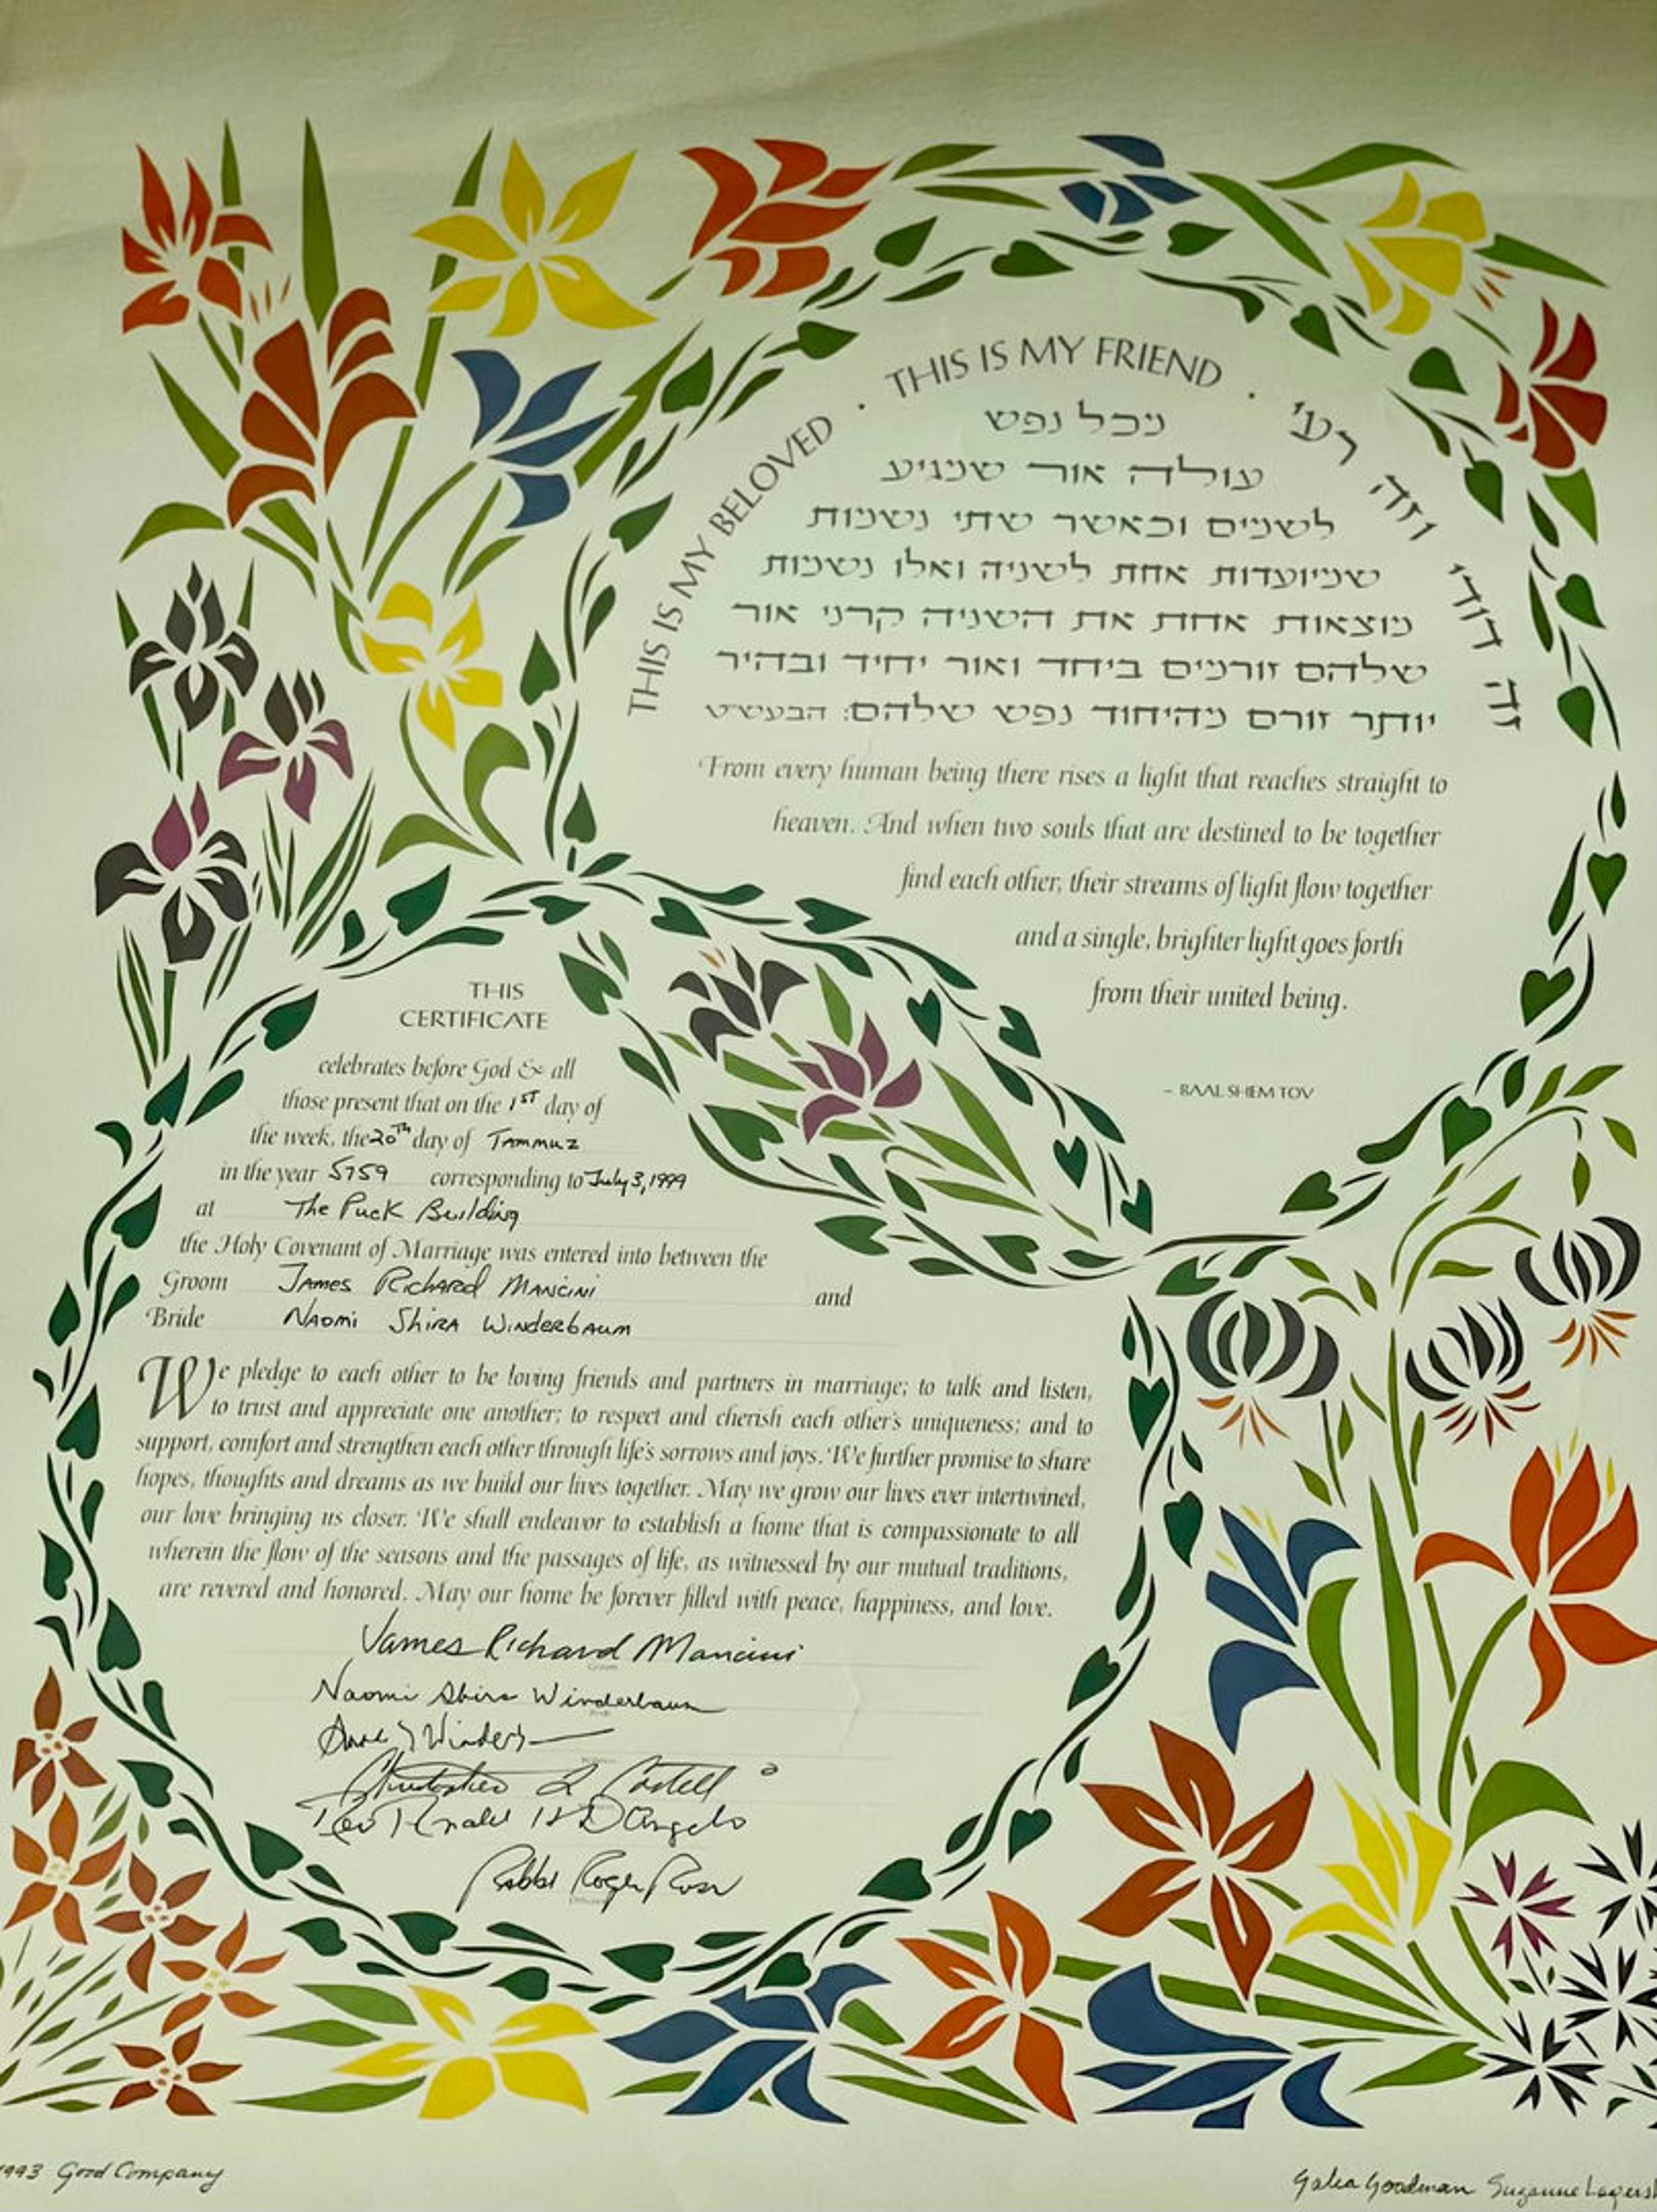 THIS IS MY BELOVED · THIS IS MY FRIEND ·
זה דודי וזה רעי
מכל נפש
עולה אור שמגיע
לשמים וכאשר שתי נשמות
שמיועדות אחת לשניה ואלו נשמות
מוצאות אחת את השניה קרני אור
שלהם זורמים ביחד ואור יחיד ובהיר
יותר זורם מהיחוד נפש שלהם: הבעש״ט
From every human being there rises a light that reaches straight to
heaven. And when two souls that are destined to be together
find each other, their streams of light flow together
and a single, brighter light goes forth
from their united being.
- BAAL SHEM TOV
THIS
CERTIFICATE
celebrates before God & all
those present that on the 1ST day of
the week, the 20Th day of Tammuz
in the year 5759 corresponding to July 3, 1999
at The Puck Building
the Holy Covenant of Marriage was entered into between the
Groom James Richard Mancini and
Bride Naomi Shira Winderbaum
We pledge to each other to be loving friends and partners in marriage; to talk and listen,
to trust and appreciate one another; to respect and cherish each other's uniqueness; and to
support, comfort and strengthen each other through life's sorrows and joys. We further promise to share
hopes, thoughts and dreams as we build our lives together. May we grow our lives ever intertwined,
our love bringing us closer. We shall endeavor to establish a home that is compassionate to all
wherein the flow of the seasons and the passages of life, as witnessed by our mutual traditions,
are revered and honored. May our home be forever filled with peace, happiness, and love.
James Richard Mancini
Groom
Naomi Shira Winderbaum
Bride
Christopher
Rev D'Angelo
Rabbi Roger Ross
1993 Good Company
Galia Goodman Suzanne